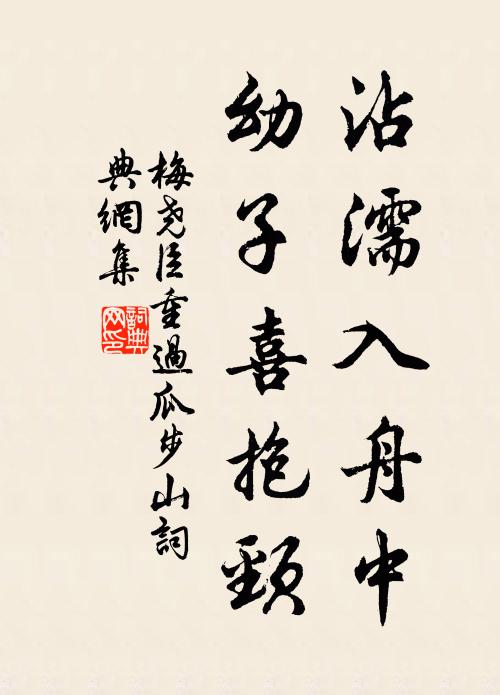 沾濡入舟中
幼子喜抱頸
梅尧臣重過瓜步山詞
典網集
詞典网印